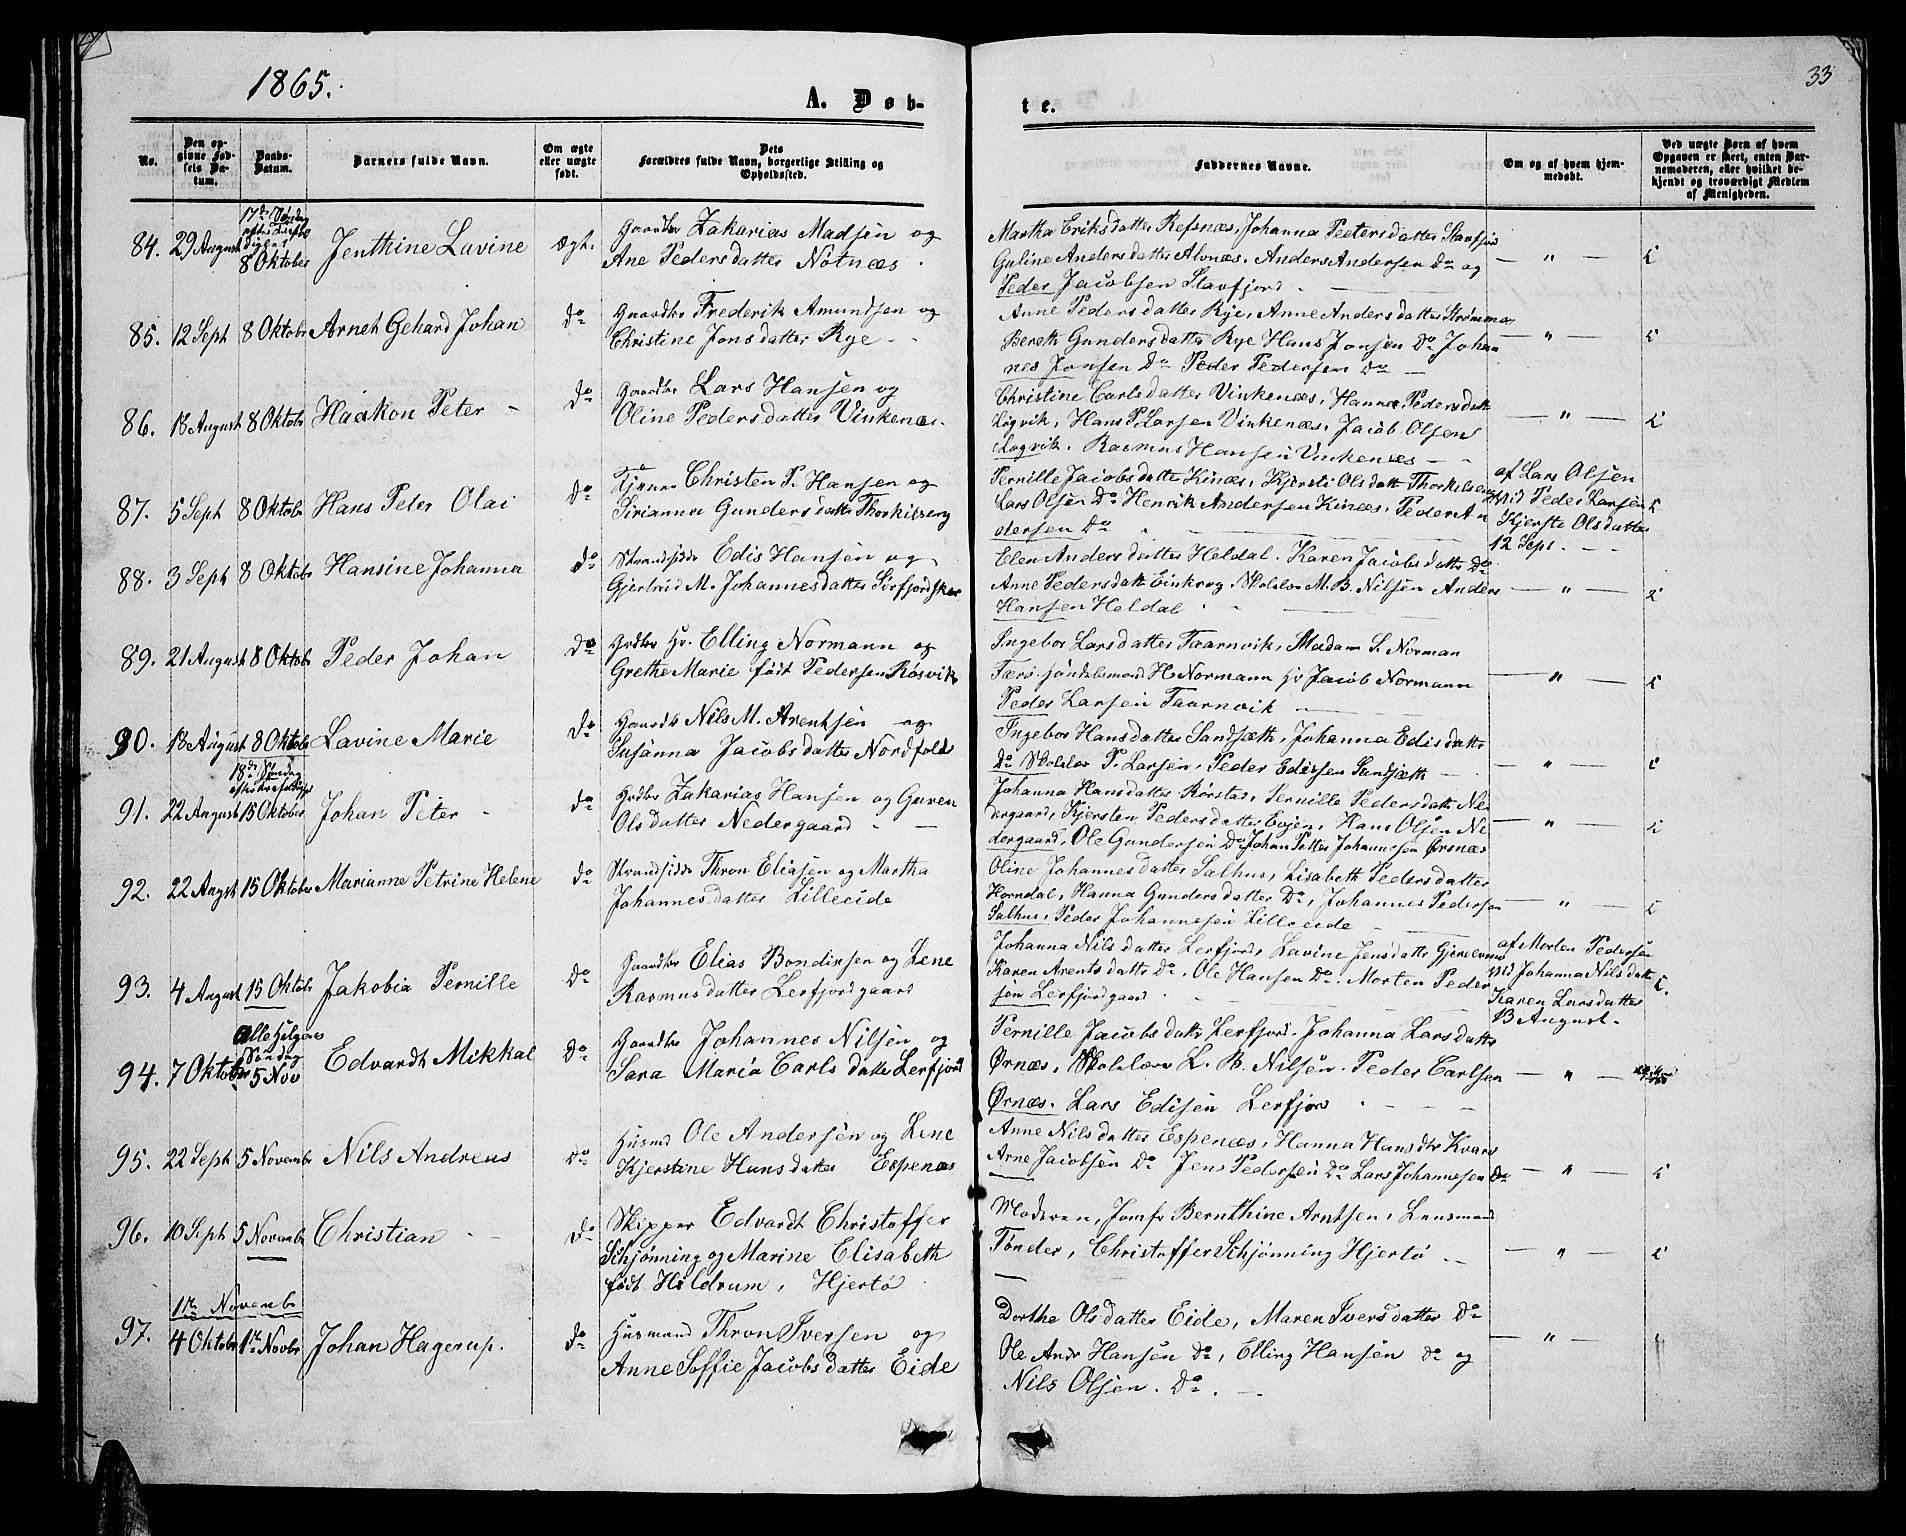 1865.
33
A. Døb-
te.
No.
Den op-
givne Fød-
sels Da-
tum.
Daabs-
Datum.
Barnets fulde Navn.
Om ægte
eller uægte
født.
Dets
Forældres fulde Navn, borgerlige Stilling og
Opholdssted.
Faddernes Navne.
Om og af hvem hjem-
medøbt.
Ved uægte Børn af hvem
Opgaven er skeet, enten Bar-
nemoderen, eller hvilket be-
kjendt og troværdigt Medlem
af Menigheden.
17de Søndag
8 Oktober
84. 29 August Jenthine Lavine ægt.
Gaardbr Zakarias Madsen og
Ane Pedersdatter Nötnæs
Martha Eriksdatter Refsnæs, Johanna Peetersdatter Stavfjor
Guline Andersdatter Alvnæs. Anders Andersen Do og
Peder Jacobsen Stavfjord
— " —
85. 12 Sept 8 Oktobr Arnet Gehard Johan Do
Gaardbr Frederik Amundsen og
Christine Jonsdatter Rye
Anne Pedersdatter Rye, Anne Andersdatter Strømmo
Bereth Gundersdatter Rye Hans Jonsen Do Johan
nes Jonsen Do Peder Pedersen Do
— " —
86. 13 August 8 Oktobr Haakon Peter Do
Gaardbr Lars Hansen og
Oline Pedersdatter Vinkenæs
Christine Carlsdatter Vinkenæs, Hanna Pedersdatt
Løgvik, Hans P Larsen Vinkenæs, Jacob Olsen
Løgvik. Rasmus Hansen Vinkenæs
— " —
87. 5 Sept 8 Oktobr Hans Peter Olai Do
Christen P. Hansen og
Sirianna Gundersdatter Thorkilseng
Pernille Jacobsdatte Kinæs, Kjersti Olsdatt Thorkelseng
Lars Olsen Do Henrik Andersen Kinæs, Peder An
dersen Do
af Lars Olsen
Vid Peder Larsen
Kjerste Olsdatter
12 Sept.
88. 3 Sept 8 Oktobr Hansine Johanna Do
Strandsidder Edis Hansen og
Gjertrud M. Johannesdatter Sørfjordskar
Elen Andersdatter Heldal. Karen Jacobsdatter Do
Anne Pedersdatt Einkrog, Skolelær M. B. Nilsen Anders
Hansen Heldal
— " —
89. 21 August 8 Oktobr Peder Johan Do
Grdbr Hr. Elling Normann og
Grethe Marie født Pedersen Røsvik
Ingebor Larsdatter Taarnvik, Madam S. Norman
H Normann Hr Jacob Normann
Peder Larsen Taarnvik
— " —
90. 13 August 8 Oktobr Lavine Marie Do
Gaardb Nils M. Arentsen og
Susanna Jacobsdatter Nordfold
Ingebor Hansdatter Sandsæth, Johanna Edisdatte
Do Skolelær P. Larsen, Peder Edissen Sandsæth
— " —
18de Søndag
91. 22 August 15 Oktober Johan Peter Do
Grdbr Zakarias Hansen og Guren
Olsdatter Nedergaard
Johanna Hansdatter Rørstad, Pernille Pedersdatt Ne
dergaard, Kjersten Pedersdatter Evjen, Hans Olsen Ne
dergaard, Ole Gundersen Do Johan Petter Johannesen Ørsnæs
— " —
92. 22 Augst 15 Oktober Marianne Petrine Helene Do
Strandsidder Thron Eliasen og Martha
Johannesdatter Lilleeide
Oline Johannesdatter Salhus, Lisabeth Pedersdatter
Horndal, Hanna Gundersdatter Do, Johannes Pedersen
Salhus, Peder Johannesen Lilleeide
— " —
93. 4 August 15 Oktobr Jakobia Pernille Do
Gaardbr Elias Bendixsen og Lene
Rasmusdatter Lerfjordgaard
Johanna Nilsdatter Lerfjord, Lavine Jensdatter
Karen Arentsdatte Do, Ole Hansen Do Morten Peder
sen Lerfjordgaard
af Morten Pedersen
Vid Johanna Nilsdatte
Karen Larsdatter
13 August
Alle Helgens
Søndag
94. 7 Oktobr 5 Nov Edvardt Mikkal Do
Gaardbr Johannes Nilsen og
Sara Maria Carlsdatte Lerfjord
Pernille Jacobsdatte Lerfjord. Johanna Larsdatter
Ørnæs, Skolelær L. B. Nilsen. Peder Carlsen
Ørnæs. Lars Edisen Lerfjor
— " —
95. 22 Sept 5 Novembr Nils Andreas Do
Husmd Ole Andersen og Lene
Kjerstine Hansdatter Espenæs
Anne Nilsdatter Espenæs, Hanna Hansdtr Kvars
Arne Jacobsen Do Jens Pedersen Do Lars Johannesen Do
— " —
96. 10 Sept 5 Novembr Christian Do
Skipper Edvardt Christoffer
Schjønning og Marine Elisabeth
født Holdrum, Hjertø
Moderen, Jomfr Bernthine Arntsen, Lensmand
Tønder, Christoffer Schjønning Hjertø
— " —
1ste Novembr
97. 4 Oktobr 1ste Novbr Johan Hagerup. Do
Husmand Thron Iversen og
Anne Soffie Jacobsdatter Eide
Dorthe Olsdatter Eide, Maren Iversdatter Do
Ole Andr Hansen Do, Elling Hansen Do og
Nils Olsen. Do.
— " —